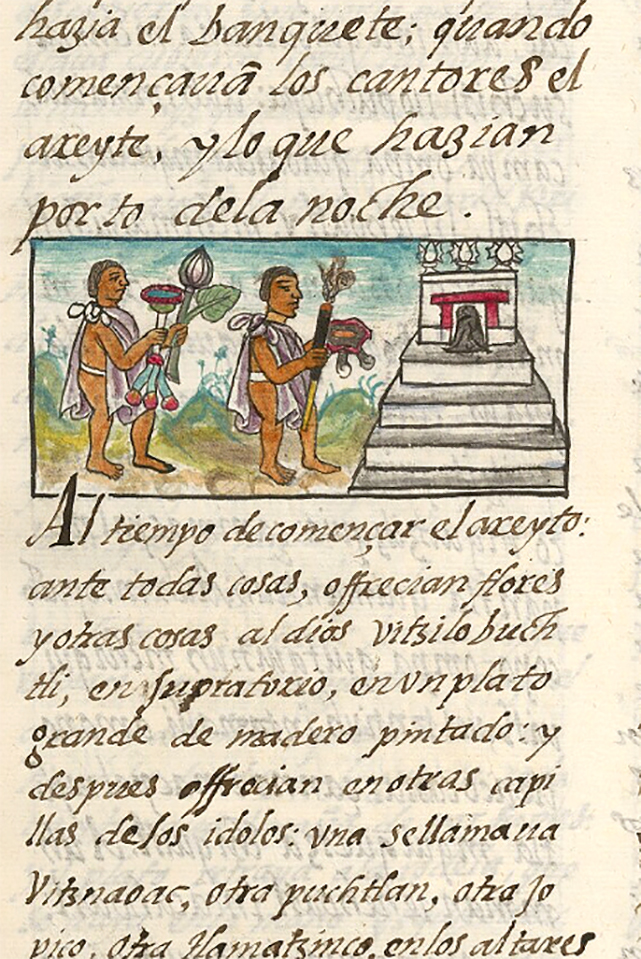 hazia el banquete; quando
començauā los cantores el
areyte, y lo que hazian
por to dela noche.
Al tiempo de començar el areyto:
ante todas cosas, offrecian flores
y otras cosas al dios Vitzilobuch
tli, en su oratorio, en vn plato
grande de madero pintado: y
despues offrecian en otras capi
llas de los idolos: vna se llamaua
Vitznaoac, otra puchtlan, otra Jo
pico, otra Ilamatzinco, en los altares